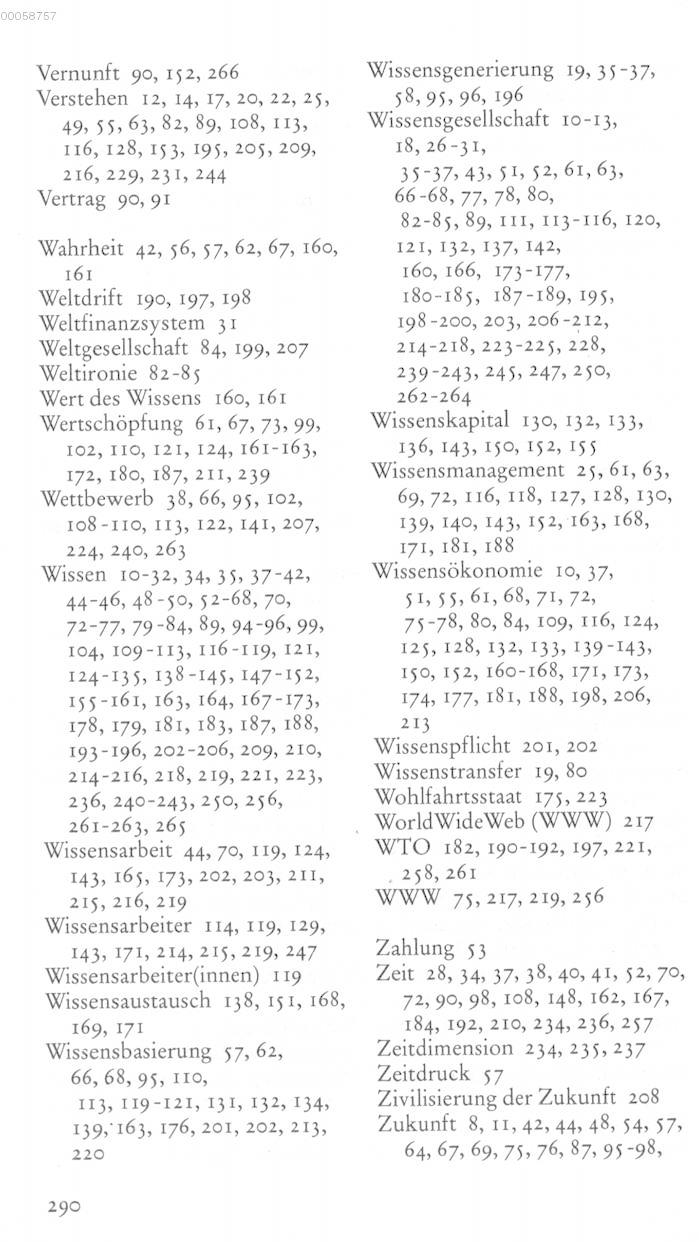 00058757
Vernunft 90, 152, 266
Verstehen 12, 14, 17, 20, 22, 25,
49, 55, 63, 82, 89, 108, 113,
116, 128, 153, 195, 205, 209,
216, 229, 231, 244
Vertrag 90, 91
Wahrheit 42, 56, 57, 62, 67, 160,
161
Weltdrift 190, 197, 198
Weltfinanzsystem 31
Weltgesellschaft 84, 199, 207
Weltironie 82-85
Wert des Wissens 160, 161
Wertschöpfung 61, 67, 73, 99,
102, 110, 121, 124, 161-163,
172, 180, 187, 211, 239
Wettbewerb 38, 66, 95, 102,
108-110, 113, 122, 141, 207,
224, 240, 263
Wissen 10-32, 34, 35, 37-42,
44-46, 48-50, 52-68, 70,
72-77, 79-84, 89, 94-96, 99,
104, 109-113, 116-119, 121,
124-135, 138-145, 147-152,
155-161, 163, 164, 167-173,
178, 179, 181, 183, 187, 188,
193-196, 202-206, 209, 210,
214-216, 218, 219, 221, 223,
236, 240-243, 250, 256,
261-263, 265
Wissensarbeit 44, 70, 119, 124,
143, 165, 173, 202, 203, 211,
215, 216, 219
Wissensarbeiter 114, 119, 129,
143, 171, 214, 215, 219, 247
Wissensarbeiter(innen) 119
Wissensaustausch 138, 151, 168,
169, 171
Wissensbasierung 57, 62,
66, 68, 95, 110,
113, 119-121, 131, 132, 134,
139, 163, 176, 201, 202, 213,
220
Wissensgenerierung 19, 35-37,
58, 95, 96, 196
Wissensgesellschaft 10-13,
18, 26-31,
35-37, 43, 51, 52, 61, 63,
66-68, 77, 78, 80,
82-85, 89, 111, 113-116, 120,
121, 132, 137, 142,
160, 166, 173-177,
180-185, 187-189, 195,
198-200, 203, 206-212,
214-218, 223-225, 228,
239-243, 245, 247, 250,
262-264
Wissenskapital 130, 132, 133,
136, 143, 150, 152, 155
Wissensmanagement 25, 61, 63,
69, 72, 116, 118, 127, 128, 130,
139, 140, 143, 152, 163, 168,
171, 181, 188
Wissensökonomie 10, 37,
51, 55, 61, 68, 71, 72,
75-78, 80, 84, 109, 116, 124,
125, 128, 132, 133, 139-143,
150, 152, 160-168, 171, 173,
174, 177, 181, 188, 198, 206,
213
Wissenspflicht 201, 202
Wissenstransfer 19, 80
Wohlfahrtsstaat 175, 223
WorldWideWeb (WWW) 217
WTO 182, 190-192, 197, 221,
258, 261
WWW 75, 217, 219, 256
Zahlung 53
Zeit 28, 34, 37, 38, 40, 41, 52, 70,
72, 90, 98, 108, 148, 162, 167,
184, 192, 210, 234, 236, 257
Zeitdimension 234, 235, 237
Zeitdruck 57
Zivilisierung der Zukunft 208
Zukunft 8, 11, 42, 44, 48, 54, 57,
64, 67, 69, 75, 76, 87, 95-98,
290